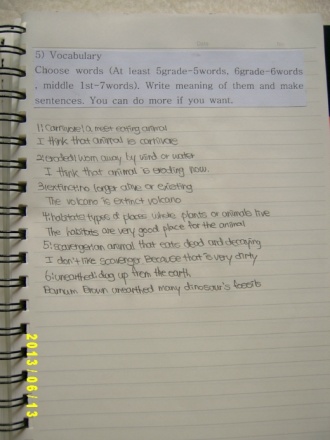 5) Vocabulary
Choose words (At least 5grade-5words, 6grade-6words
, middle 1st-7words). Write meaning of them and make
sentences. You can do more if you want.
1: Carnivore: a meat eating animal
I think that animal is carnivore
2: eroded: worn away by wind or water
I think that animal is eroding now.
3: extinct: no longer alive or existing
The volcano is extinct volcano
4: habitats: types of places where plants or animals live
The habitats are very good place for the animal
5: scavenger: an animal that eats dead and decaying
I don't like scavenger Because that is very dirty
6: unearthed: dug up from the earth
Barnum Brown unearthed many dinosaur's fossils
2013/06/13